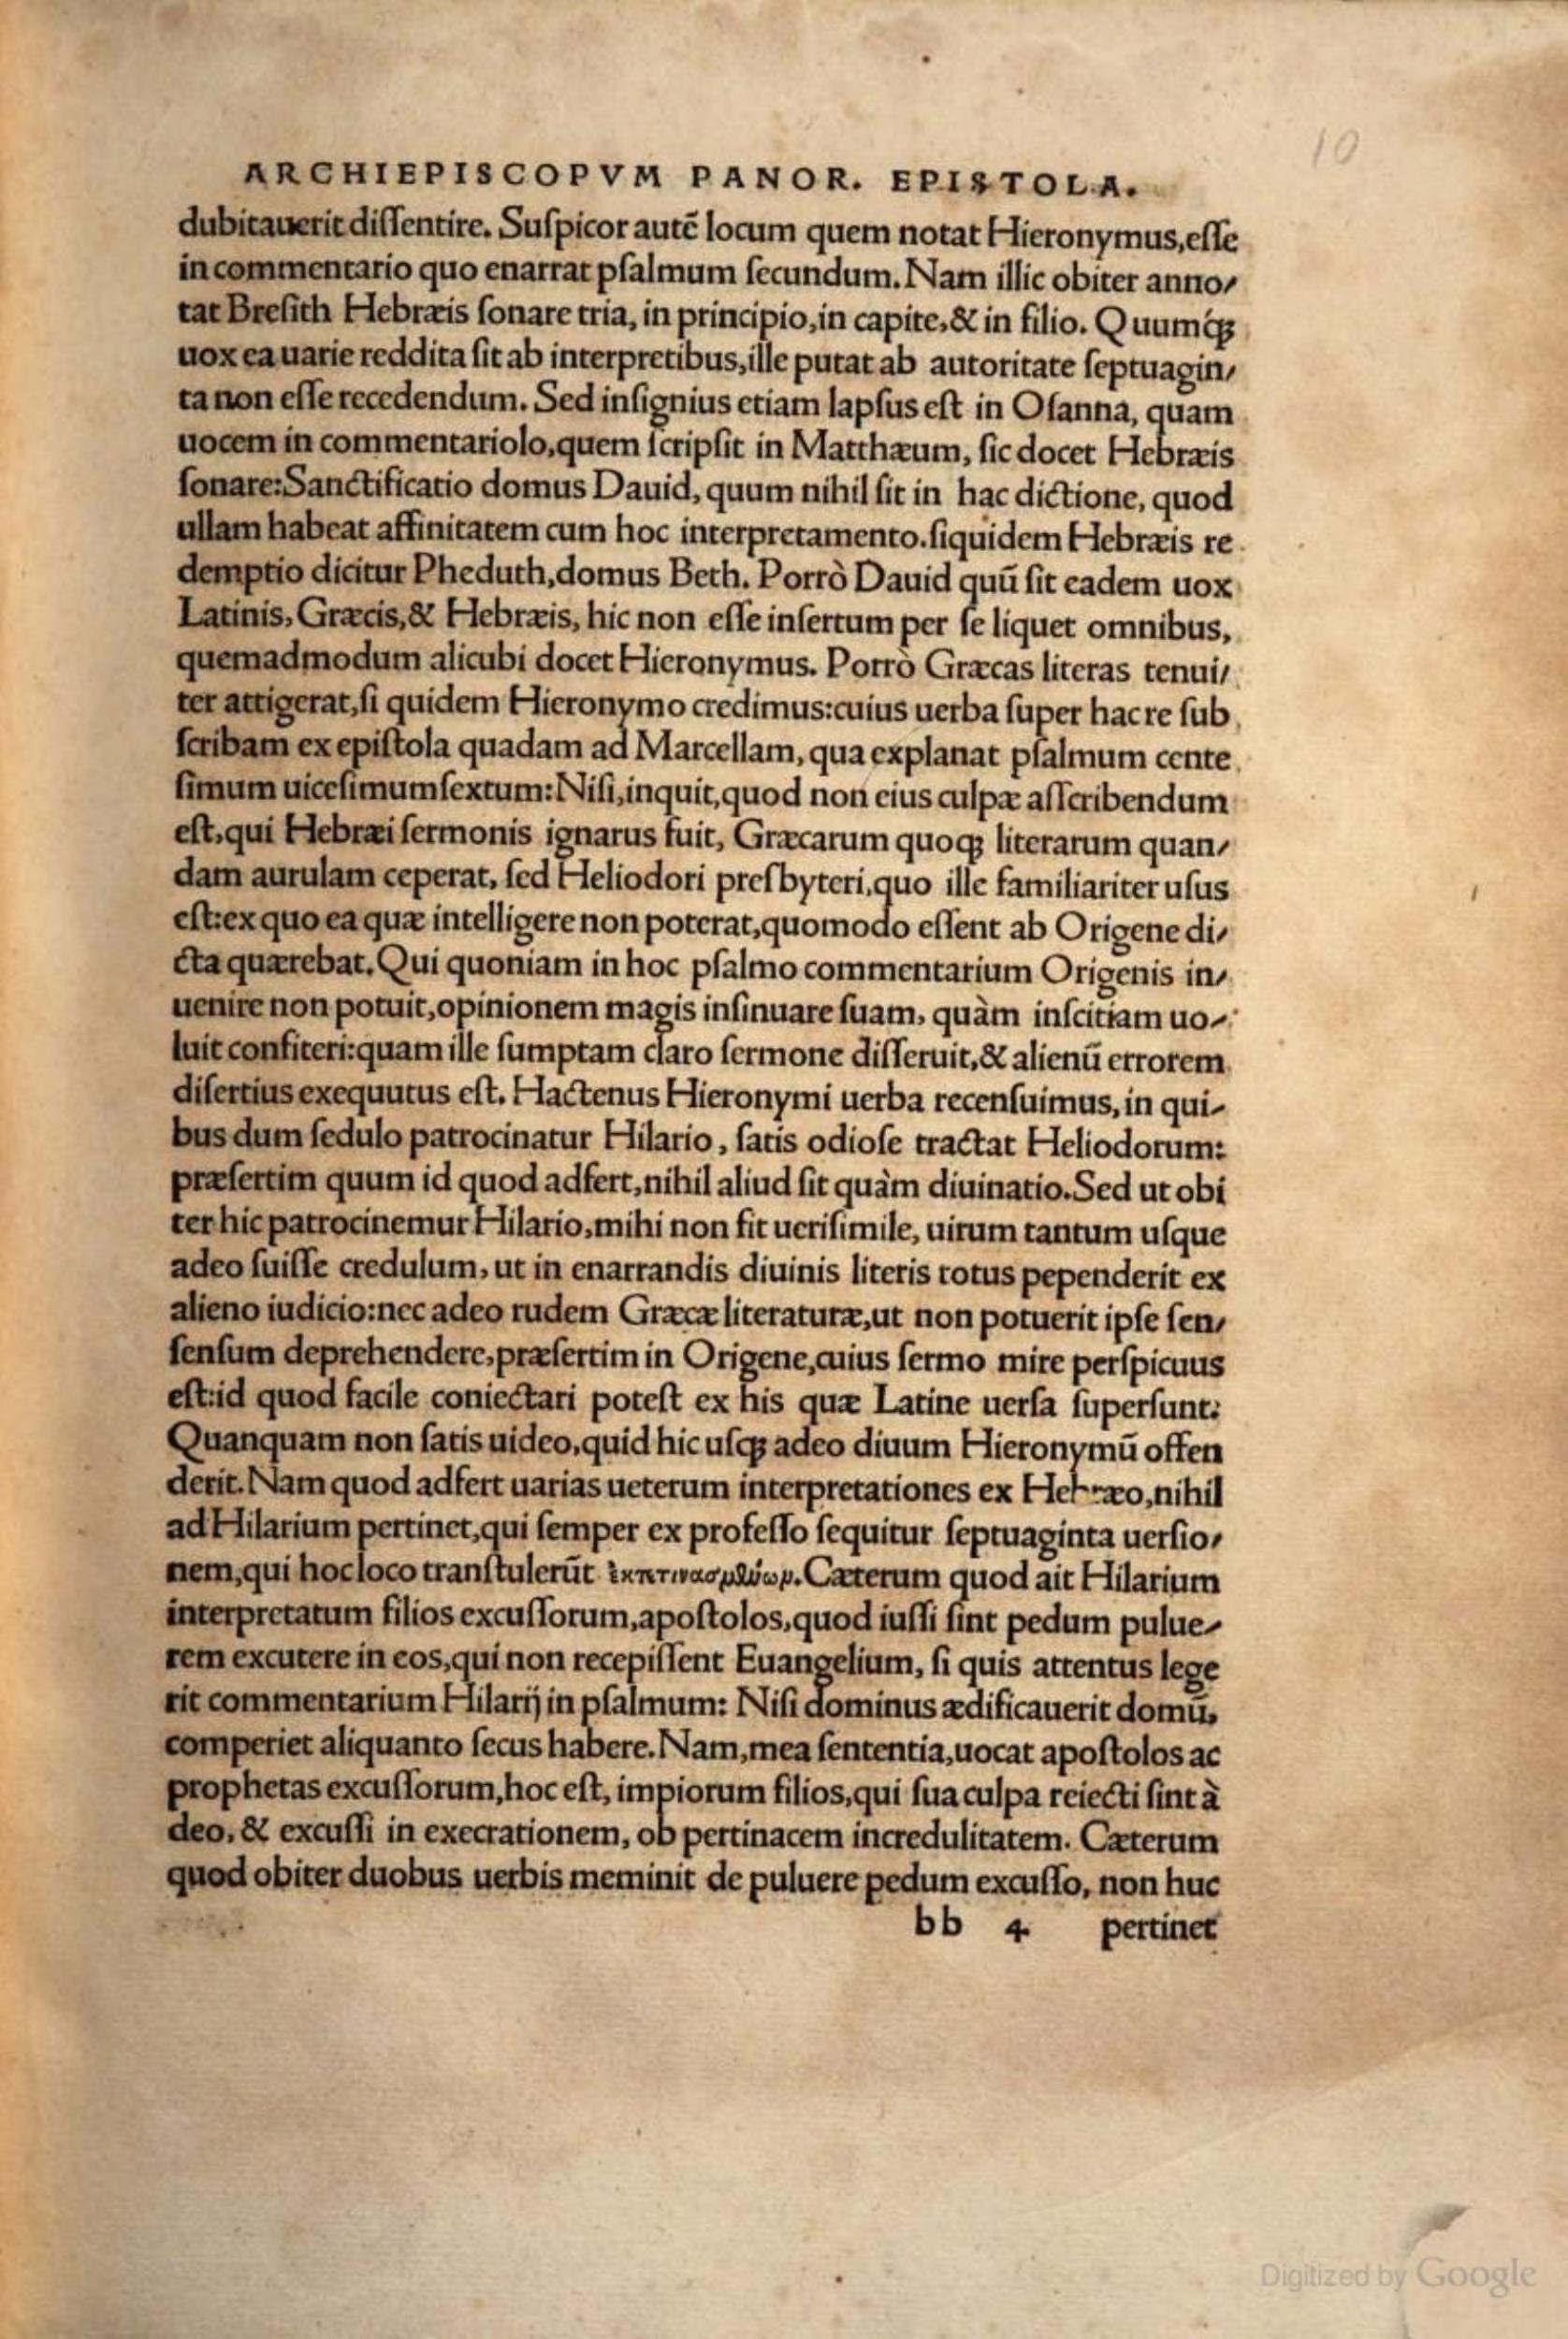 10
ARCHIEPISCOPVM PANOR. EPISTOLA.
dubitauerit dissentire. Suspicor autē locum quem notat Hieronymus, esse
in commentario quo enarrat psalmum secundum. Nam illic obiter anno-
tat Bresith Hebræis sonare tria, in principio, in capite, & in filio. Quumq́;
uox ea uarie reddita sit ab interpretibus, ille putat ab autoritate septuagin-
ta non esse recedendum. Sed insignius etiam lapsus est in Osanna, quam
uocem in commentariolo, quem scripsit in Matthæum, sic docet Hebræis
sonare: Sanctificatio domus Dauid, quum nihil sit in hac dictione, quod
ullam habeat affinitatem cum hoc interpretamento. siquidem Hebræis re
demptio dicitur Pheduth, domus Beth. Porrò Dauid quū sit eadem uox
Latinis, Græcis, & Hebræis, hic non esse insertum per se liquet omnibus,
quemadmodum alicubi docet Hieronymus. Porrò Græcas literas tenui-
ter attigerat, si quidem Hieronymo credimus: cuius uerba super hac re sub
scribam ex epistola quadam ad Marcellam, qua explanat psalmum cente
simum uicesimumsextum: Nisi, inquit, quod non eius culpæ asscribendum
est, qui Hebræi sermonis ignarus fuit, Græcarum quoq; literarum quan-
dam aurulam ceperat, sed Heliodori presbyteri, quo ille familiariter usus
est: ex quo ea quæ intelligere non poterat, quomodo essent ab Origene di-
cta quærebat. Qui quoniam in hoc psalmo commentarium Origenis in-
uenire non potuit, opinionem magis insinuare suam, quàm inscitiam uo-
luit confiteri: quam ille sumptam claro sermone disseruit, & alienū errorem
disertius exequutus est. Hactenus Hieronymi uerba recensuimus, in qui-
bus dum sedulo patrocinatur Hilario, satis odiose tractat Heliodorum:
præsertim quum id quod adfert, nihil aliud sit quàm diuinatio. Sed ut obi
ter hic patrocinemur Hilario, mihi non fit uerisimile, uirum tantum usque
adeo fuisse credulum, ut in enarrandis diuinis literis totus pependerit ex
alieno iudicio: nec adeo rudem Græcæ literaturæ, ut non potuerit ipse sen-
sensum deprehendere, præsertim in Origene, cuius sermo mire perspicuus
est: id quod facile coniectari potest ex his quæ Latine uersa supersunt:
Quanquam non satis uideo, quid hic usq; adeo diuum Hieronymū offen
derit. Nam quod adfert uarias ueterum interpretationes ex Hebræo, nihil
ad Hilarium pertinet, qui semper ex professo sequitur septuaginta uersio-
nem, qui hoc loco transtulerūt Cæterum quod ait Hilarium
interpretatum filios excussorum, apostolos, quod iussi sint pedum pulue-
rem excutere in eos, qui non recepissent Euangelium, si quis attentus lege
rit commentarium Hilarij in psalmum: Nisi dominus ædificauerit domū,
comperiet aliquanto secus habere. Nam, mea sententia, uocat apostolos ac
prophetas excussorum, hoc est, impiorum filios, qui sua culpa reiecti sint à
deo, & excussi in execrationem, ob pertinacem incredulitatem. Cæterum
quod obiter duobus uerbis meminit de puluere pedum excusso, non huc
bb 4 pertinet
Digitized by Google